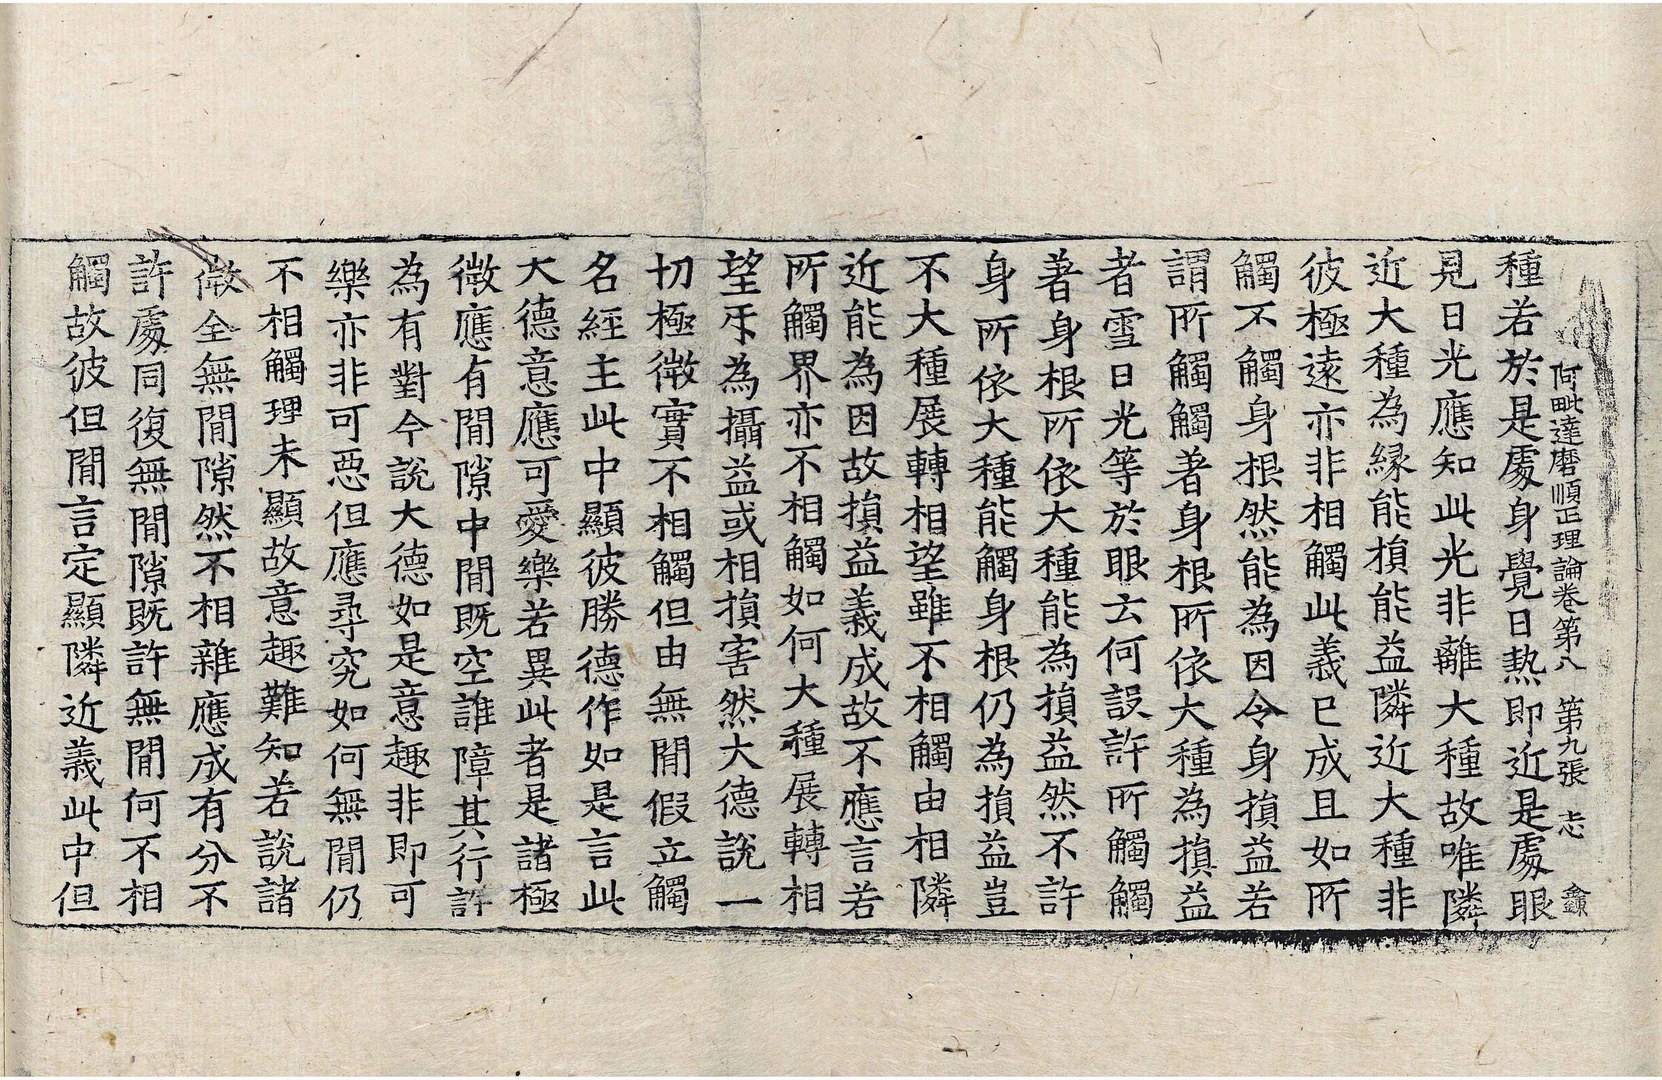 阿毗達磨順正理論卷第八　第九張　志
種若於是處身覺日熱即近是處眼
見日光應知此光非離大種故唯隣
近大種為緣能損能益隣近大種非
彼極遠亦非相觸此義已成且如所
觸不觸身根然能為因令身損益若
謂所觸觸著身根所依大種為損益
者雪日光等於眼云何設許所觸觸
著身根所依大種能為損益然不許
身所依大種能觸身根仍為損益豈
不大種展轉相望雖不相觸由相隣
近能為因故損益義成故不應言若
所觸界亦不相觸如何大種展轉相
望互為攝益或相損害然大德說一
切極微實不相觸但由無間假立觸
名經主此中顯彼勝德作如是言此
大德意應可愛樂若異此者是諸極
微應有間隙中間既空誰障其行許
為有對今說大德如是意趣非即可
樂亦非可惡但應尋究如何無間仍
不相觸理未顯故意趣難知若說諸
微全無間隙然不相雜應成有分不
許處同復無間隙既許無間何不相
觸故彼但間言定顯隣近義此中但